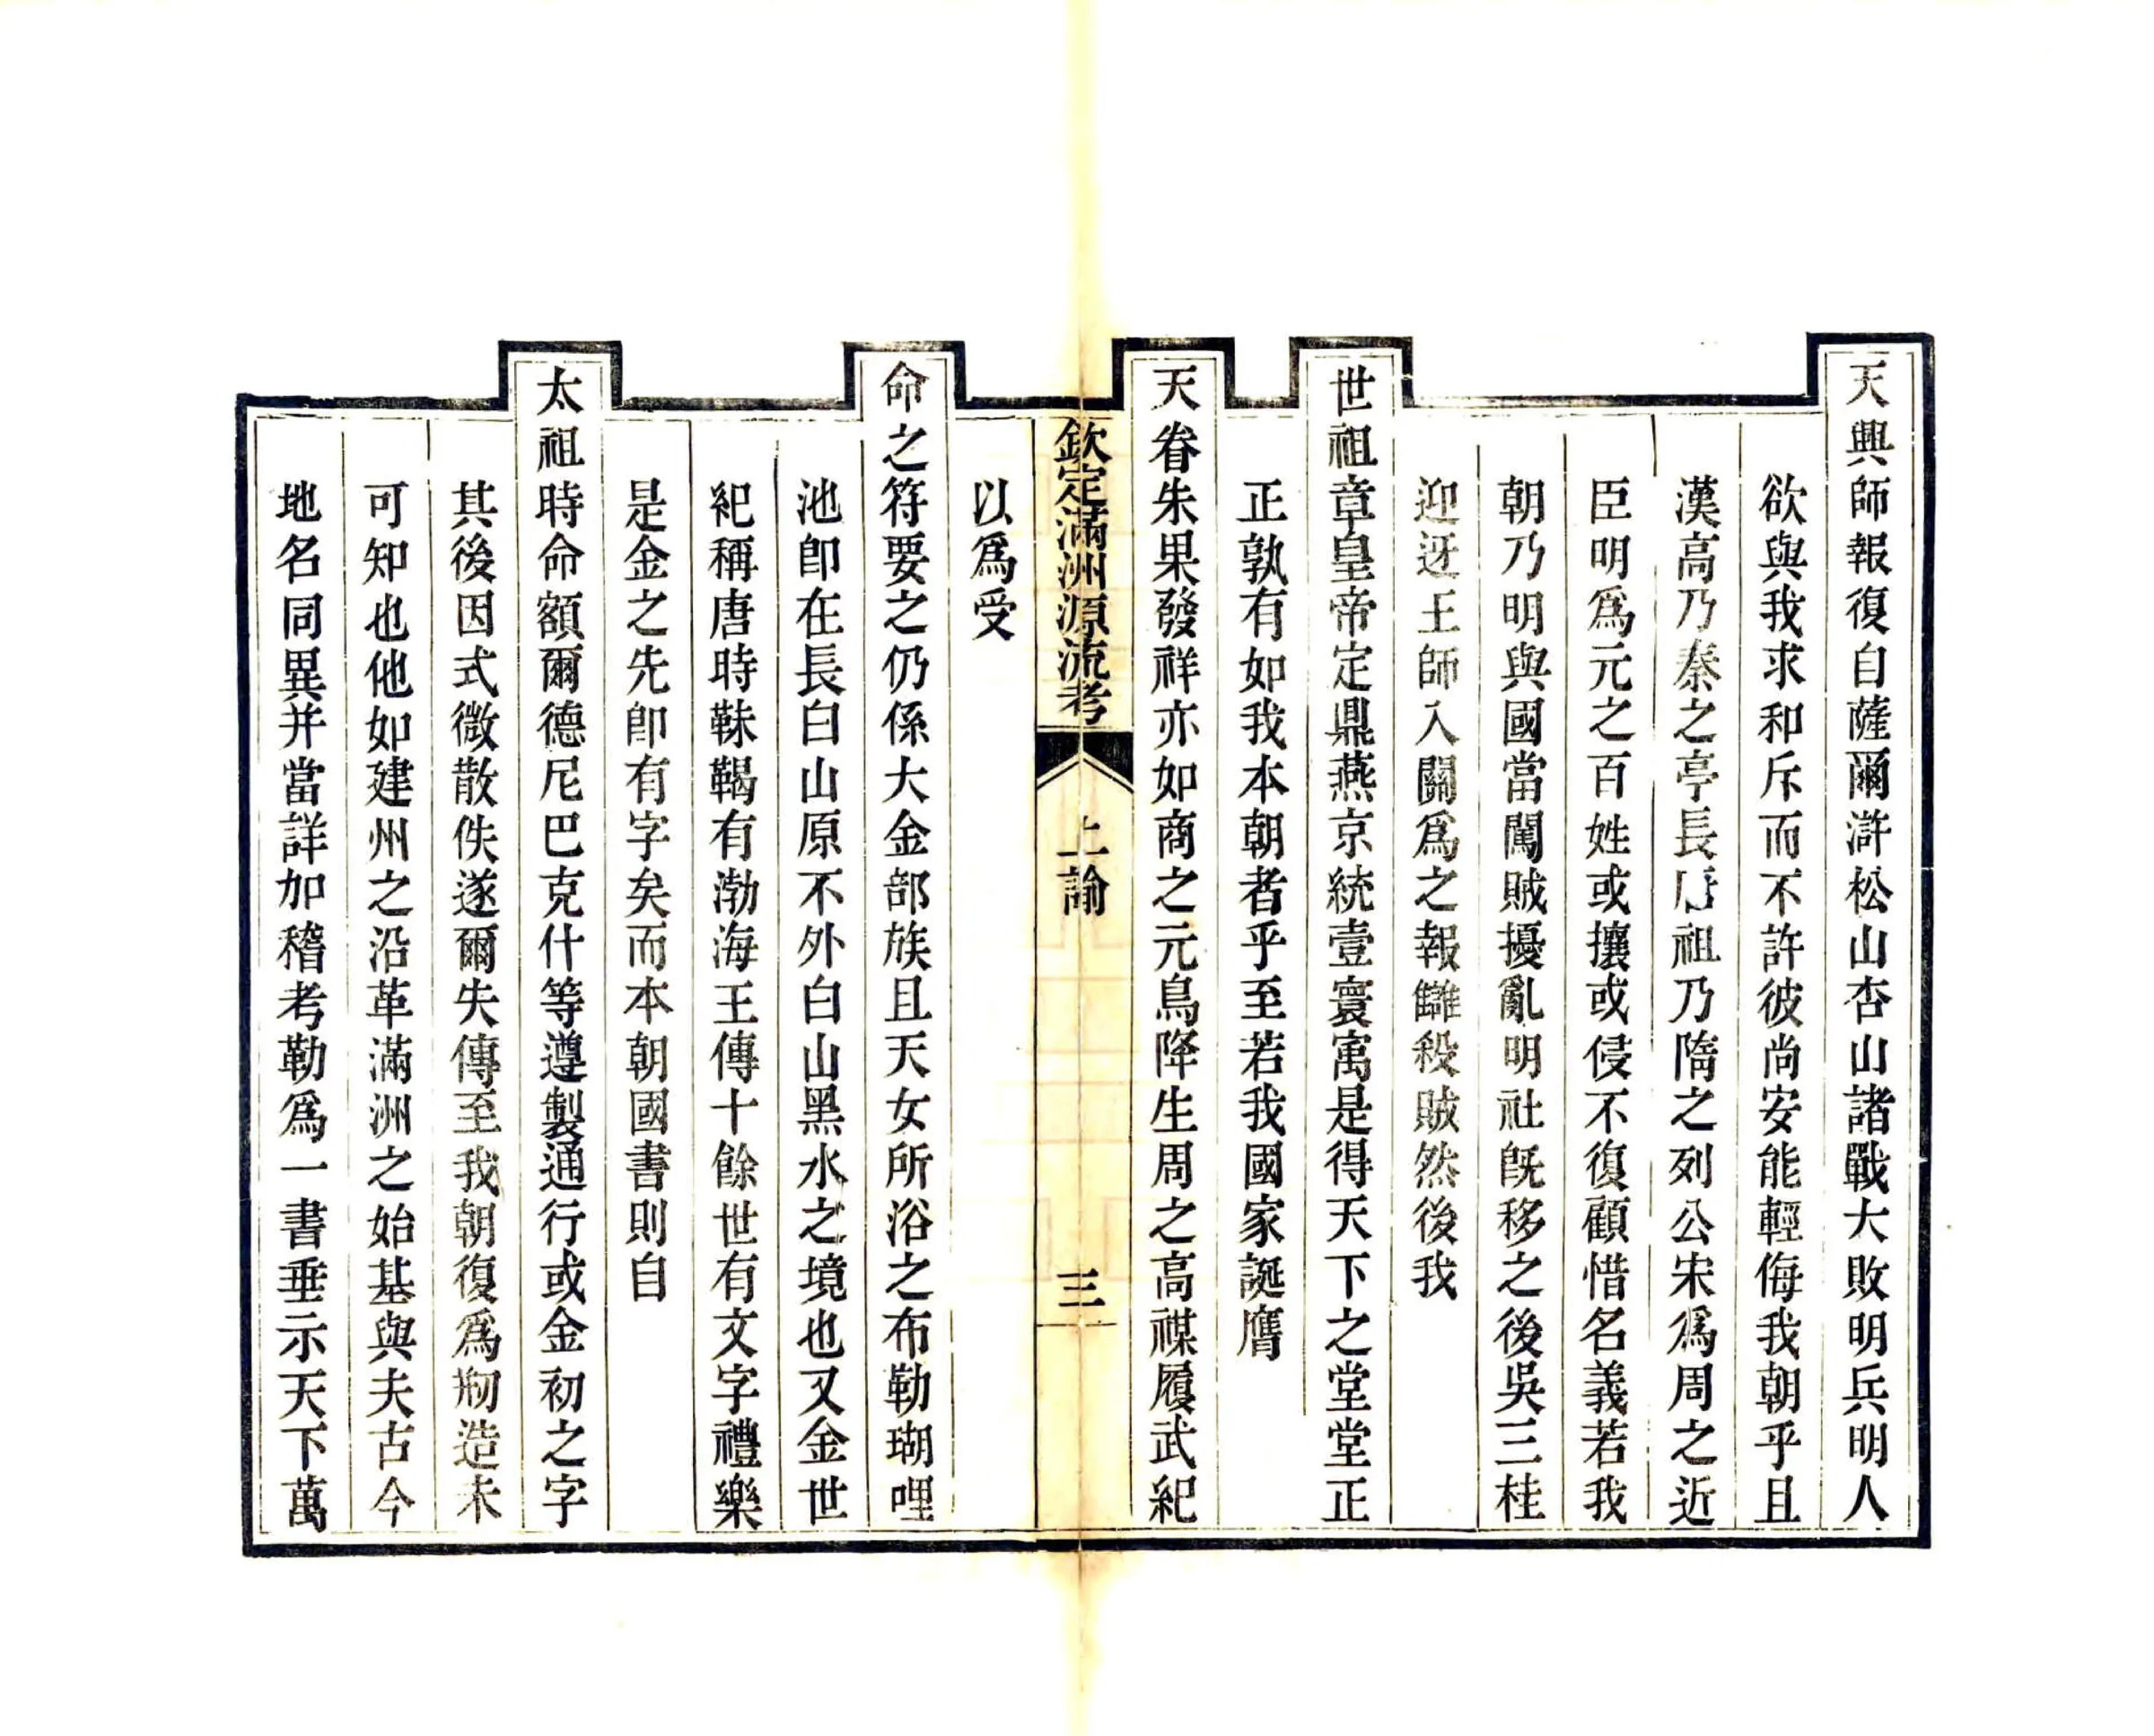 天興師報復自薩爾滸松山杏山諸戰大敗明兵明人
欲與我求和斥而不許彼尚安能輕侮我朝乎且
漢高乃秦之亭長唐祖乃隋之列公宋爲周之近
臣明爲元之百姓或攘或侵不復顧惜名義若我
朝乃明與國當闖賊擾亂明社旣移之後吳三桂
迎迓王師入關爲之報讎殺賊然後我
世祖章皇帝定鼎燕京統壹寰寓是得天下之堂堂正
正孰有如我本朝者乎至若我國家誕膺
天眷朱果發祥亦如商之元鳥降生周之高禖履武紀
欽定滿洲源流考 上諭 三
以爲受
命之符要之仍係大金部族且天女所浴之布勒瑚哩
池卽在長白山原不外白山黑水之境也又金世
紀稱唐時靺鞨有渤海王傳十餘世有文字禮樂
是金之先卽有字矣而本朝國書則自
太祖時命額爾德尼巴克什等遵製通行或金初之字
其後因式微散佚遂爾失傳至我朝復爲剏造未
可知也他如建州之沿革滿洲之始基與夫古今
地名同異并當詳加稽考勒爲一書垂示天下萬